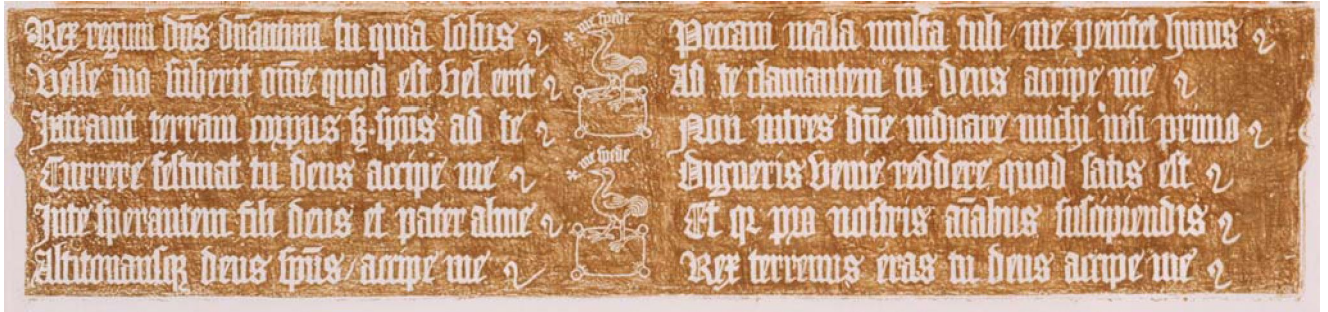 Rex regum dn̄s dn̄antium tu quia solus
Velle tuo suberit om̄e quod est vel erit
Intrauit terram corpus ꝫ sp̄us ad te
Currere festinat tu deus accipe me
In te sperantem fili deus et pater alme
Altitonansqꝫ deus sp̄us accipe me
me spede
me spede
Peccaui mala multa tuli / me penitet huius
Ad te clamantem tu deus accipe me
Non intres dn̄e iudicare michi nisi primo
Digneris venie reddere quod satis est
Et pro nostris aīabus suscipiendis
Rex terrenus eras tu deus accipe me